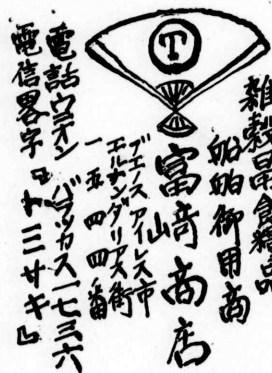 T
雑穀食糧品
船舶御用商
富﨑商店
ブエノスアイレス市
エルナンダリアス街
一五四四番
電話ウニオン バラッカス一七三六
電信畧字『トミサキ』